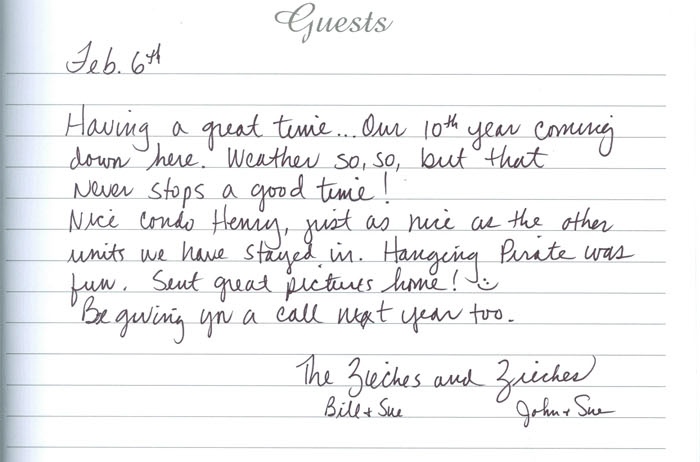 Guests
Feb. 6th
Having a great time... Our 10th year coming
down here. Weather so, so, but that
never stops a good time!
Nice condo Henry, just as nice as the other
units we have stayed in. Hanging Pirate was
fun. Sent great pictures home!
Be giving yn a call next year too.
The Zieches and Zieches
Bill + Sue John + Sue